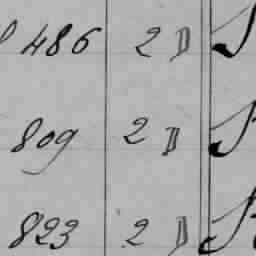 486 2 D
809 2 D
823 2 D